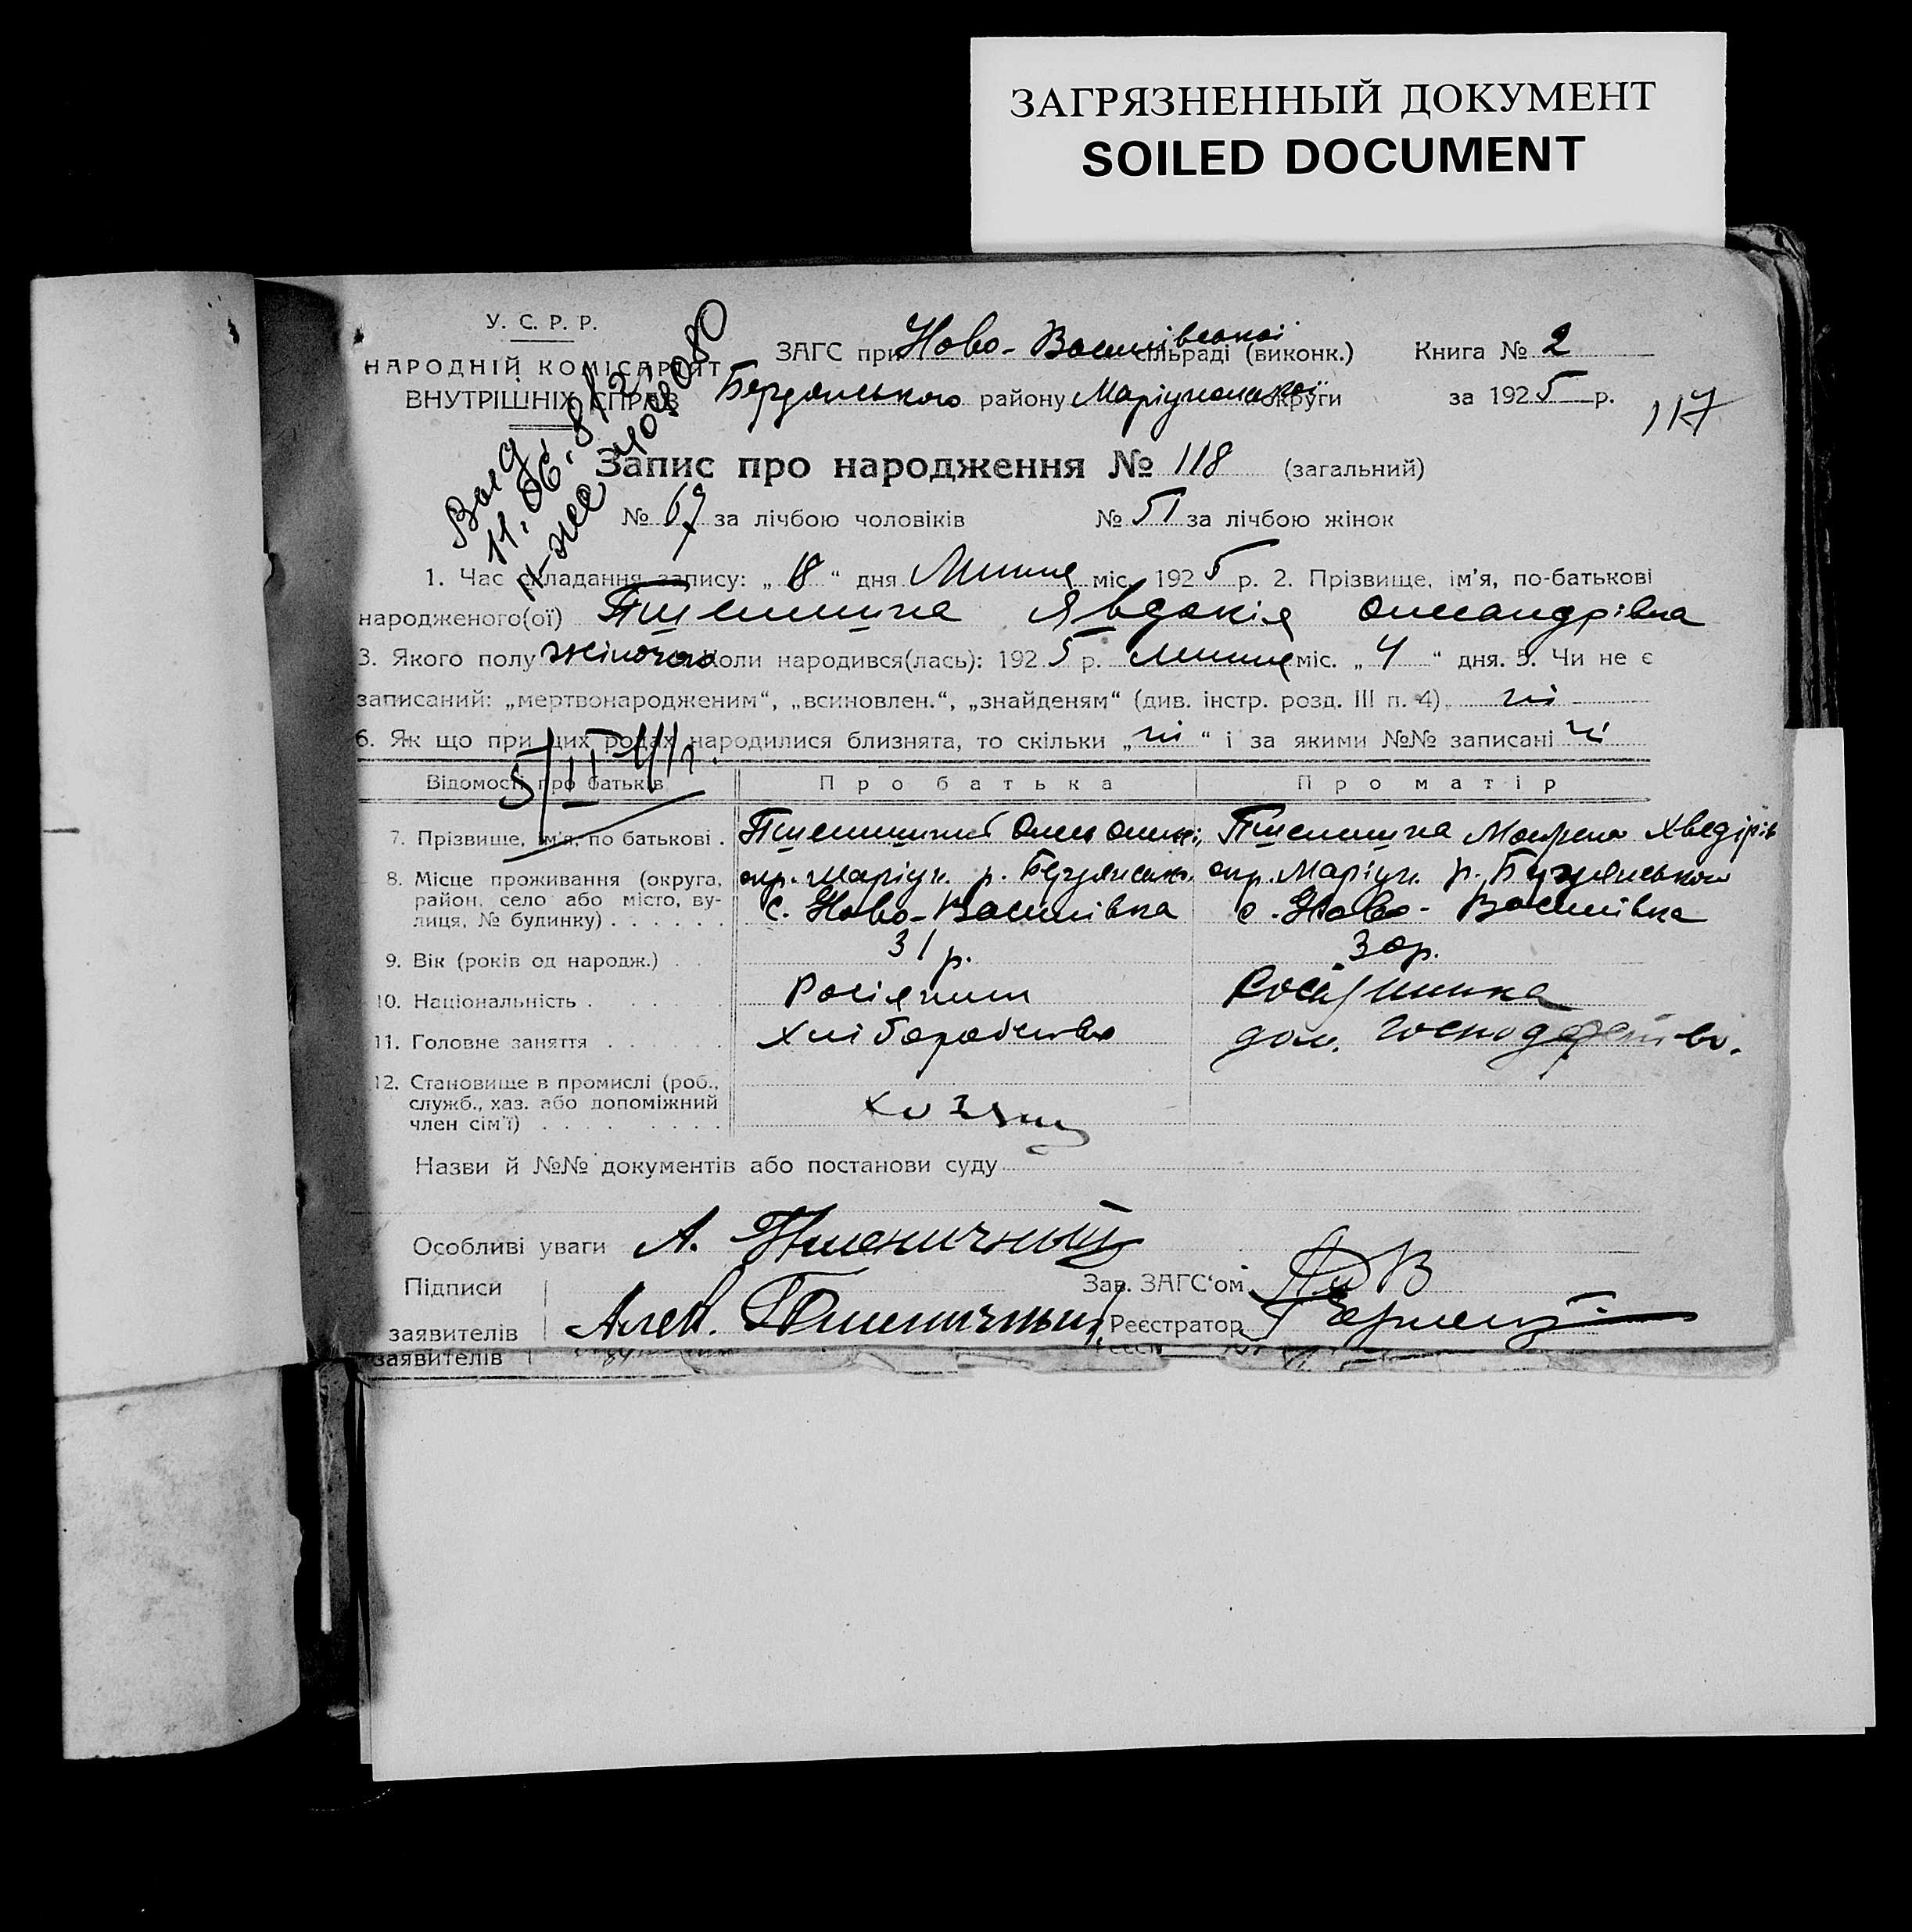 ЗАГРЯЗНЕННЫЙ ДОКУМЕНТ
SOILED DOCUMENT
У. С. Р. Р.
НАРОДНІЙ КОМІСАРІЯТ
ВНУТРІШНІХ СПРАВ
ЗАГС при Ново-Василівській сільраді (виконк.) Книга № 2
Бердянського району Маріупольської округи за 1925 р.
117
Запис про народження № 118 (загальний)
№ 67 за лічбою чоловіків № 51 за лічбою жінок
1. Час складання запису: „18“ дня Липня міс. 1925 р. 2. Прізвище, ім’я, по-батькові
народженого(ої) Пшенишна Явдокія Олександрівна
3. Якого полу жіночого Коли народився(лась): 1925 р. липня міс. „4“ дня. 5. Чи не є
записаний: „мертвонародженим“, „всиновлен.“, „знайденям“ (див. інстр. розд. III п. 4) ні
6. Як що при цих родах народилися близнята, то скільки „ні“ і за якими №№ записані ні
Відомості про батьків Про батька Про матір
7. Прізвище, ім’я, по батькові . Пшенишний Олек Олекс; Пшенишна Мотрена Хведірів
8. Місце проживання (округа, район, село або місто, вулиця, № будинку) окр. Маріуп. р. Бердянськ. окр. Маріуп. р. Бердянського
с. Ново-Василівка с. Ново-Василівка
9. Вік (років од народж.) 31 р. 30 р.
10. Національність Росіянин Росіянинка
11. Головне заняття Хліборобство дом. господарство.
12. Становище в промислі (роб., служб., хаз. або допоміжний член сім’ї) хозяин
Назви й №№ документів або постанови суду
Особливі уваги А. Пшеничный
Підписи Зав. ЗАГС‘ом
заявителів Алек. Пшеничный Реєстратор
заявителів